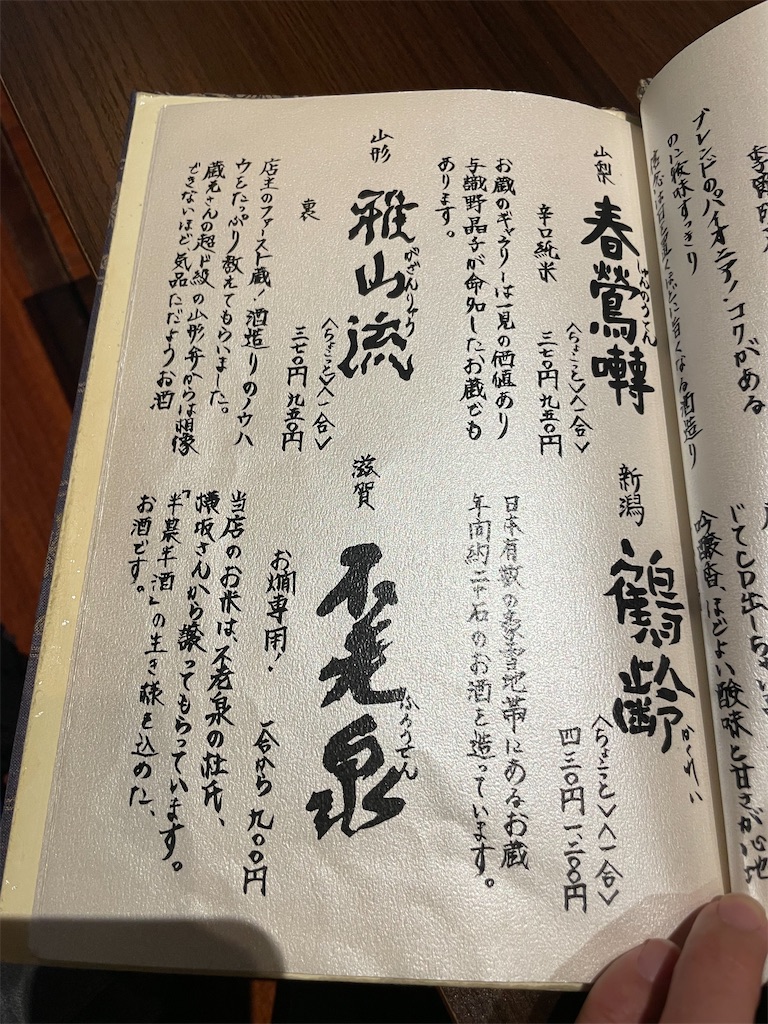 ブレンドのパイオニア！コクがある
のに後味すっきり
じてCD出しちゃい
吟醸香、ほどよい酸味と甘さが心地
山梨
春鶯囀
しゅんのうてん
辛口純米
〈ちょこっと〉〈一合〉
三七〇円 九五〇円
お蔵のギャラリーは一見の価値あり
与謝野晶子が命名したお蔵でも
あります。
新潟
鶴齢
かくれい
〈ちょこっと〉〈一合〉
四三〇円 一、二〇〇円
日本有数の豪雪地帯にあるお蔵
年間約二千石のお酒を造っています。
山形
雅山流
がざんりゅう
裏
〈ちょこっと〉〈一合〉
三七〇円 九五〇円
店主のファースト蔵！酒造りのノウハ
ウをたっぷり教えてもらいました。
蔵元さんの超ド級の山形弁からは想像
できないほど、気品ただようお酒
滋賀
不老泉
ふろうせん
お燗専用！
一合から 九〇〇円
当店のお米は、不老泉の杜氏、
横坂さんから譲ってもらっています。
「半農半酒」の生き様を込めた、
お酒です。